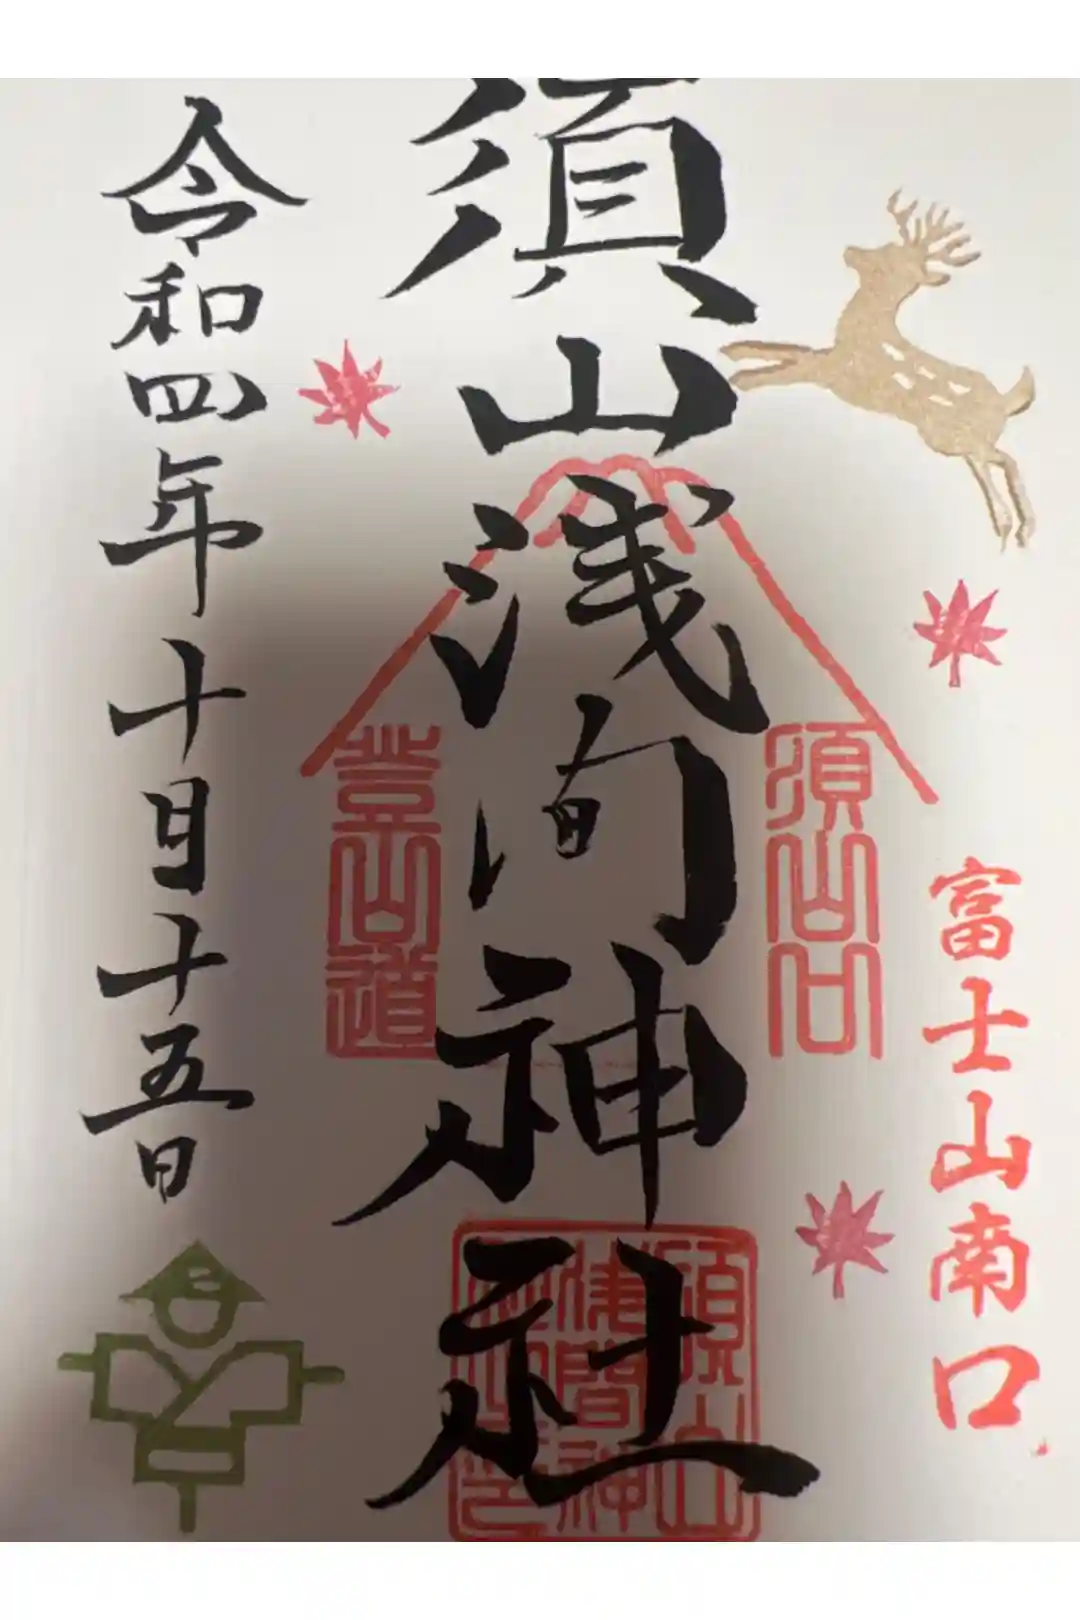 富士山南口
須山口
須山浅間神社
登山道
令和四年十月十五日